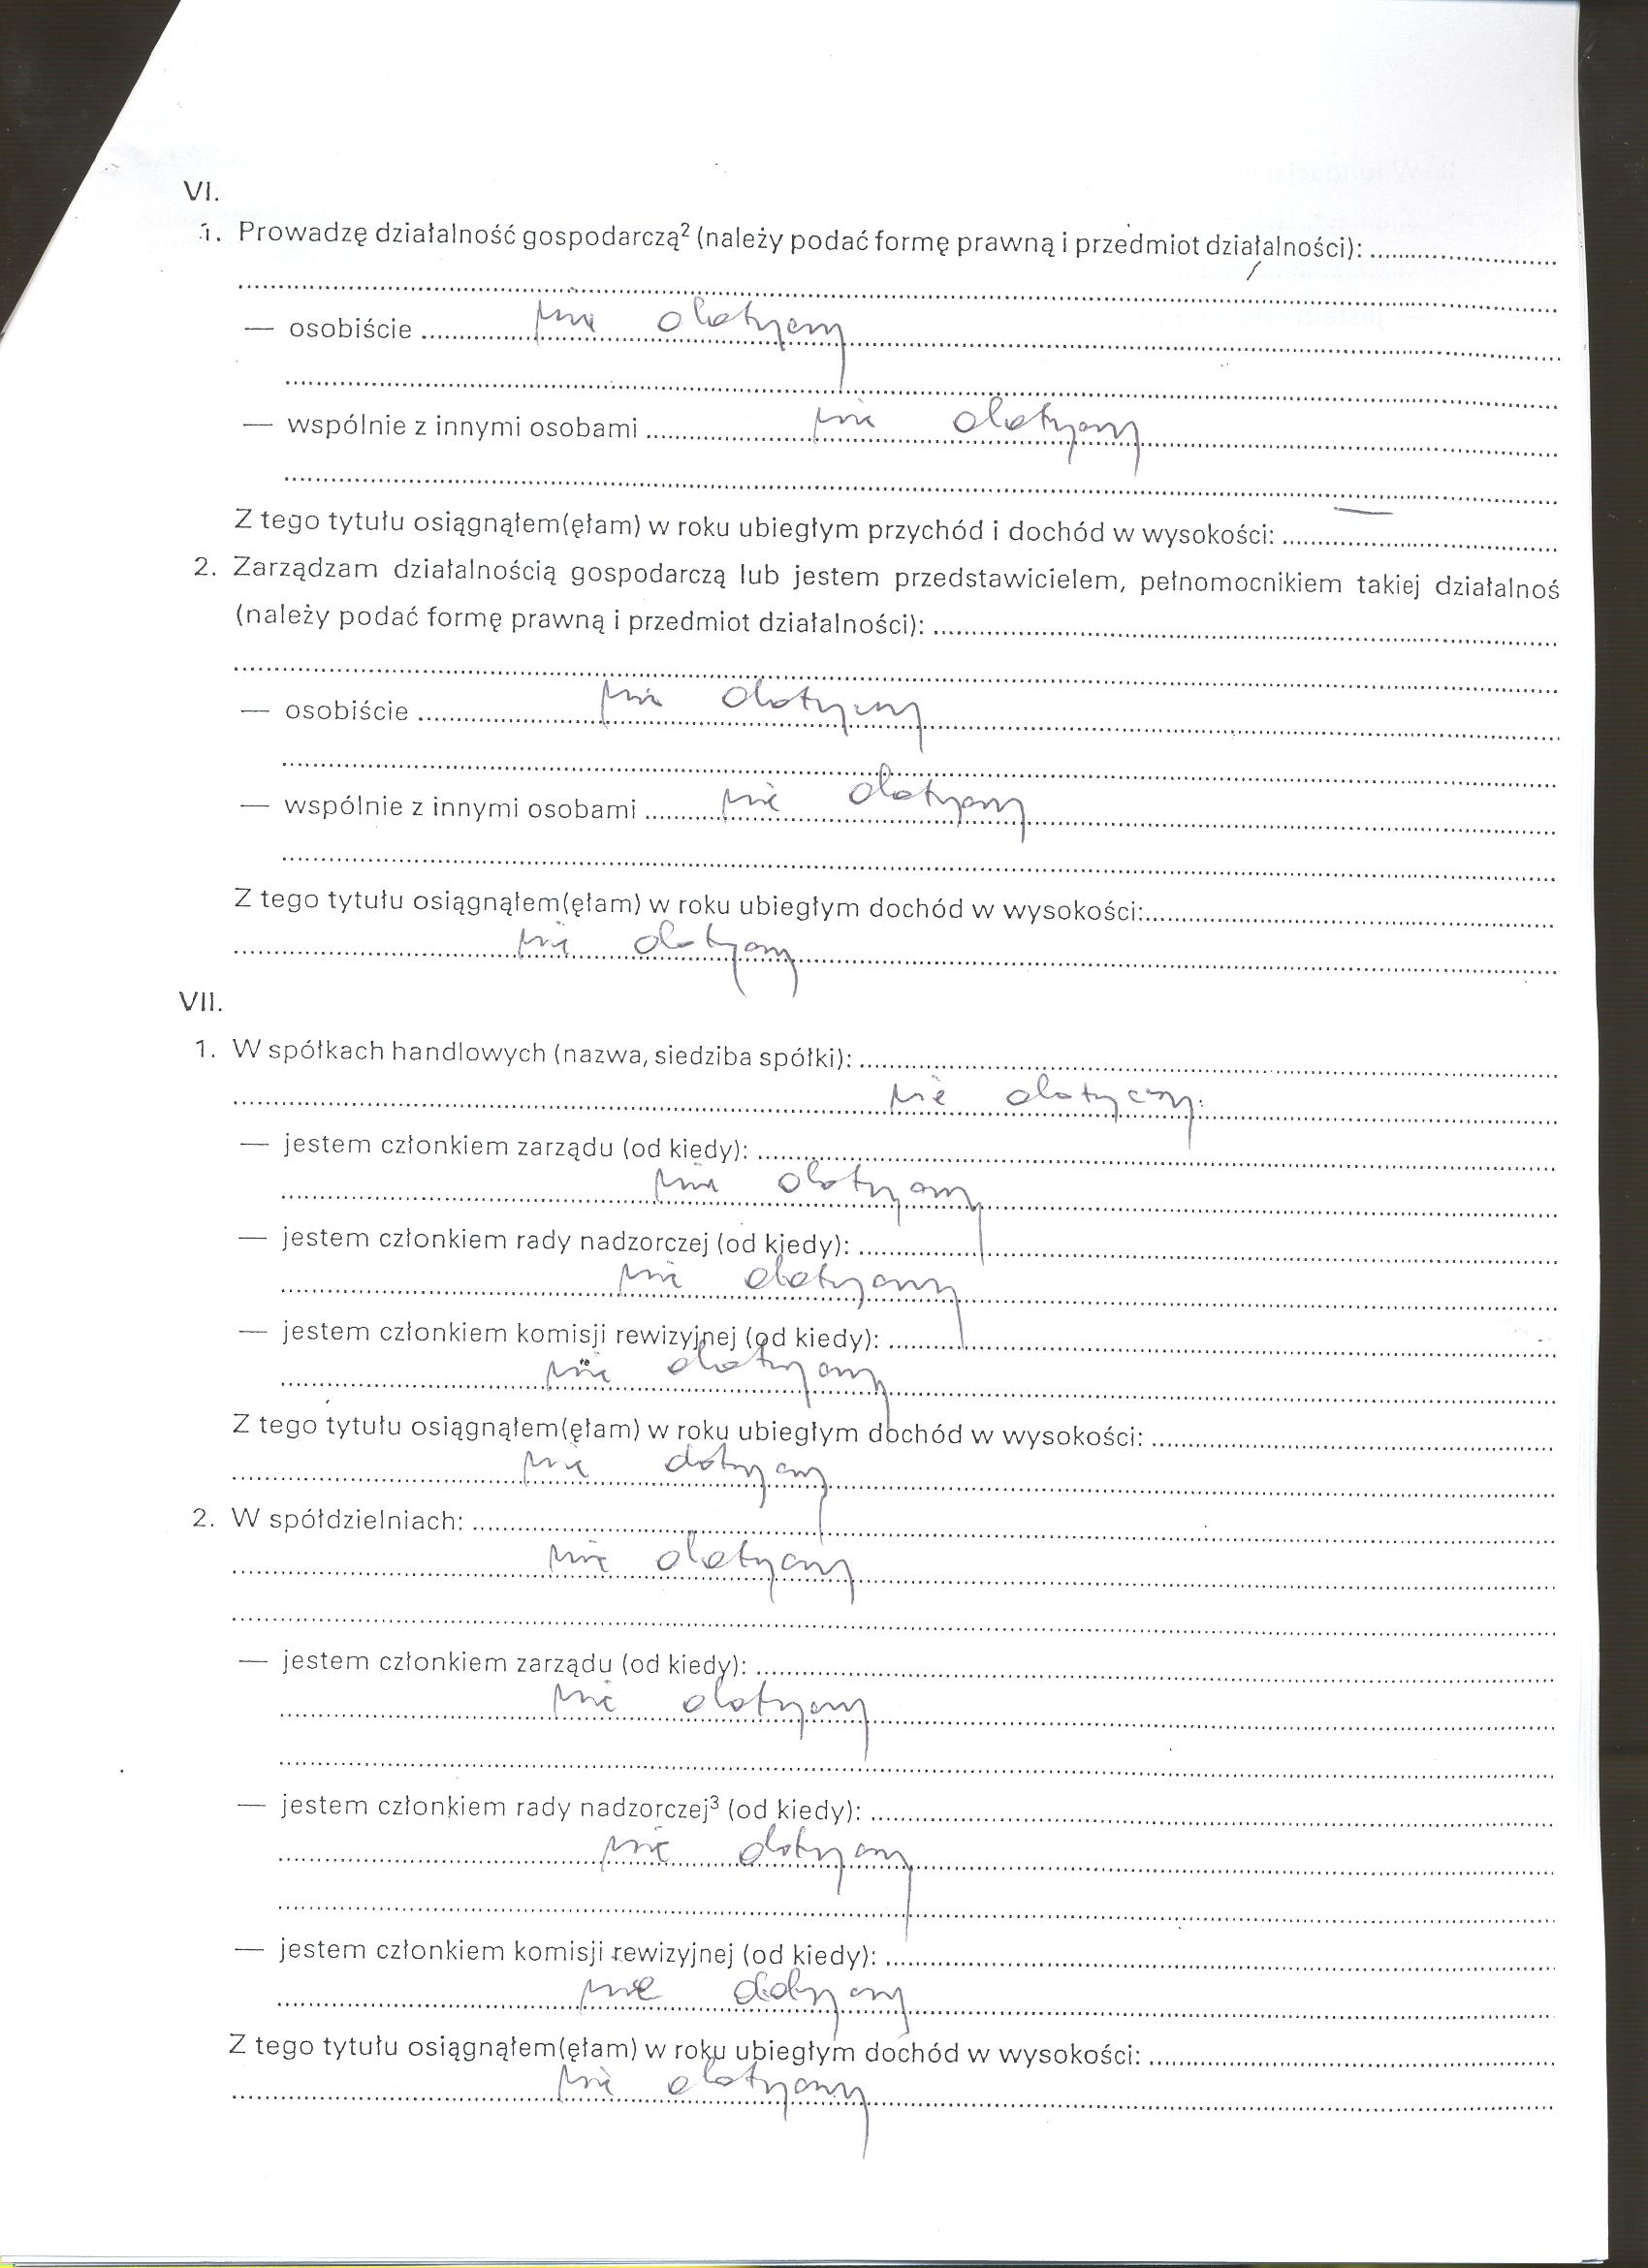 VI.
1. Prowadzę działalność gospodarczą² (należy podać formę prawną i przedmiot działalności): ........
— osobiście ........ nie dotyczy ........
— wspólnie z innymi osobami ........ nie dotyczy ........
Z tego tytułu osiągnąłem(ęłam) w roku ubiegłym przychód i dochód w wysokości: ........ —
2. Zarządzam działalnością gospodarczą lub jestem przedstawicielem, pełnomocnikiem takiej działalnoś
(należy podać formę prawną i przedmiot działalności): ........
— osobiście ........ nie dotyczy ........
— wspólnie z innymi osobami ........ nie dotyczy ........
Z tego tytułu osiągnąłem(ęłam) w roku ubiegłym dochód w wysokości: ........
nie dotyczy
VII.
1. W spółkach handlowych (nazwa, siedziba spółki): ........
nie dotyczy.
— jestem członkiem zarządu (od kiedy): ........
nie dotyczy
— jestem członkiem rady nadzorczej (od kiedy): ........
nie dotyczy
— jestem członkiem komisji rewizyjnej (od kiedy): ........
nie dotyczy
Z tego tytułu osiągnąłem(ęłam) w roku ubiegłym dochód w wysokości: ........
nie dotyczy
2. W spółdzielniach: ........
nie dotyczy
— jestem członkiem zarządu (od kiedy): ........
nie dotyczy
— jestem członkiem rady nadzorczej³ (od kiedy): ........
nie dotyczy
— jestem członkiem komisji rewizyjnej (od kiedy): ........
nie dotyczy
Z tego tytułu osiągnąłem(ęłam) w roku ubiegłym dochód w wysokości: ........
nie dotyczy